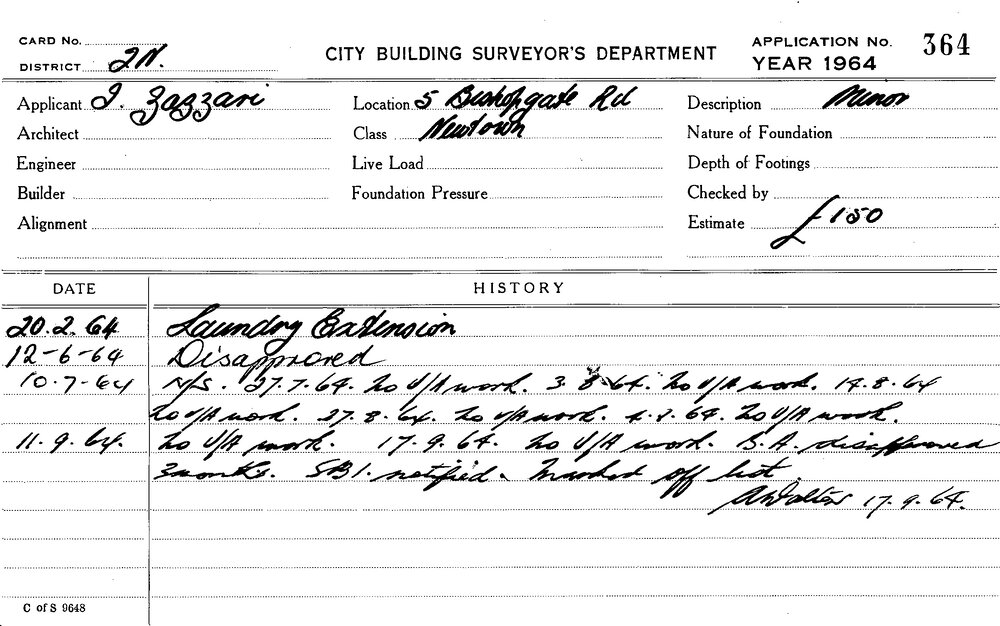 CARD No.
DISTRICT 2N.
CITY BUILDING SURVEYOR'S DEPARTMENT
APPLICATION No. 364
YEAR 1964
Applicant I. Zazzari Location 5 Bishopgate Rd Description Minor
Architect Class Newtown Nature of Foundation
Engineer Live Load Depth of Footings
Builder Foundation Pressure Checked by
Alignment Estimate £150
DATE HISTORY
20.2.64 Laundry Extension
12-6-64 Disapproved
10-7-64 N/S. 27.7.64. No U/A work. 3.8.64. No U/A work. 14.8.64
No U/A work. 27.8.64. No U/A work. 4.9.64. No U/A work.
11.9.64. No U/A work. 17.9.64. No U/A work. B.A. disapproved
3 months. SBI. notified. Marked off list.
17.9.64.
C of S 9648